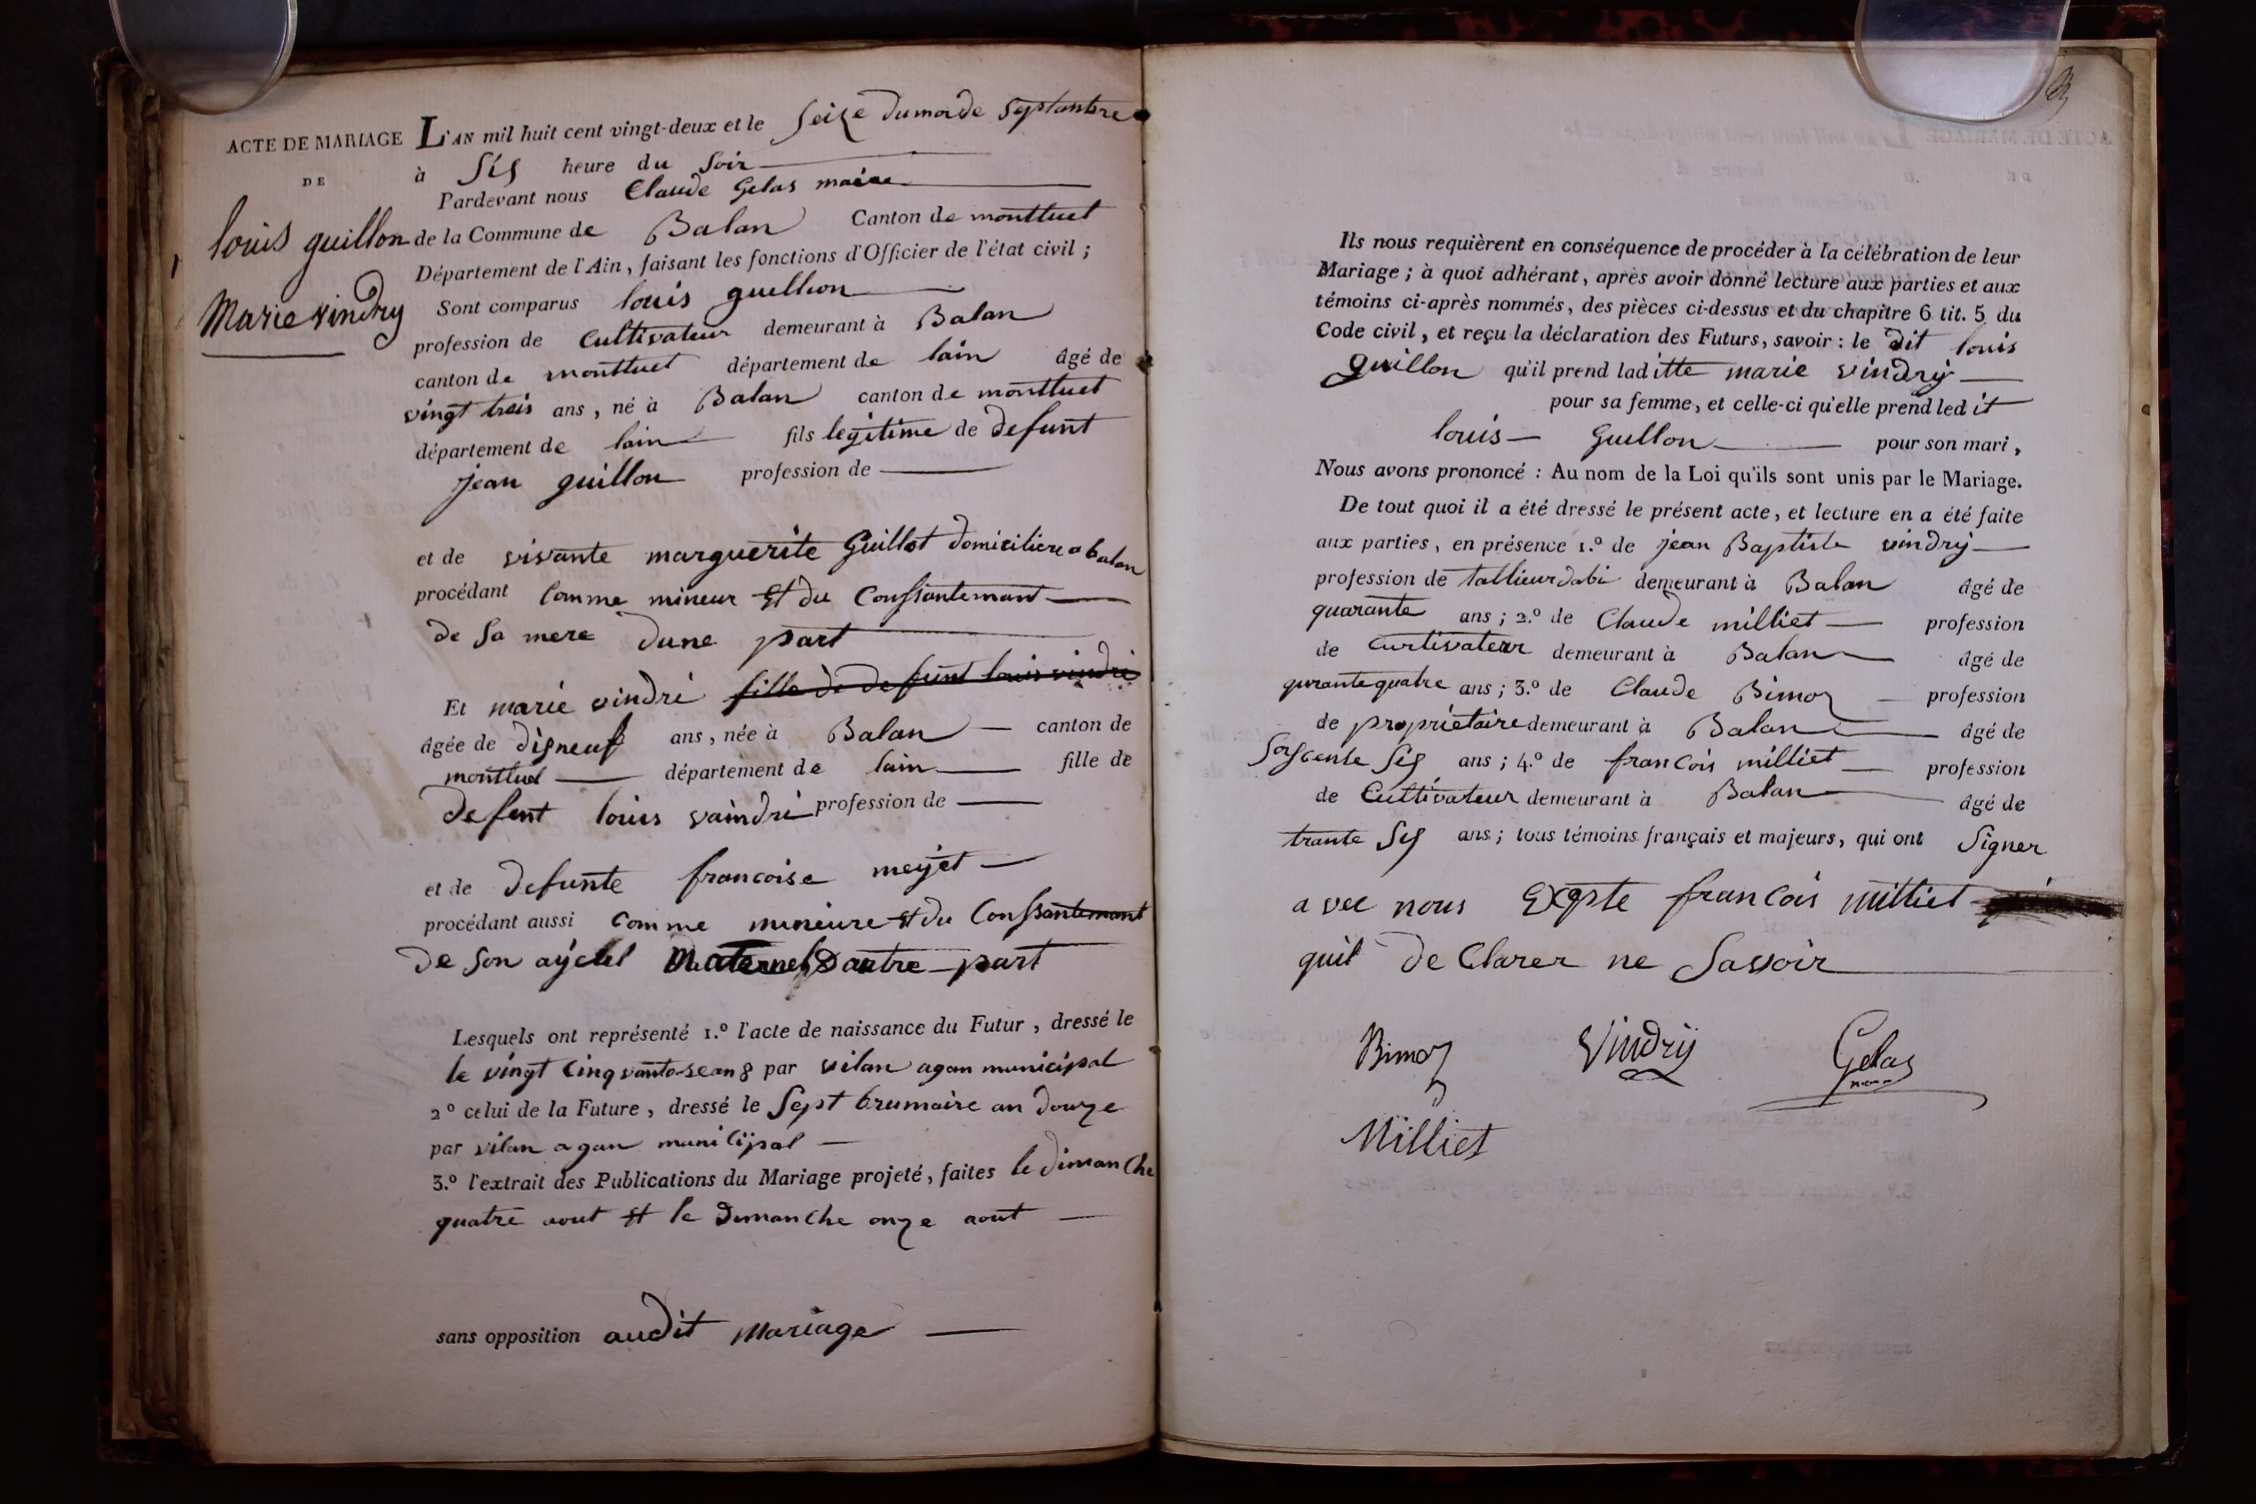 ACTE DE MARIAGE
DE
louis guillon
Marie vindry
L'AN mil huit cent vingt-deux et le Seize du mois de Septambre
à Sis heure du Soir
Pardevant nous Claude Gelas maire
de la Commune de Balan Canton de montluel
Département de l'Ain, faisant les fonctions d'Officier de l'état civil ;
Sont comparus louis guillion
profession de Cultivateur demeurant à Balan
canton de montluel département de lain âgé de
vingt trois ans, né à Balan canton de montluel
département de lain fils legitime de defunt
jean guillon profession de
et de vivante marguerite Guillot domiciliere a balan
procédant Comme mineur Et du Conssantemant
de Sa mere dune part
Et marie vindri fille de defunt louis vindri
âgée de disneuf ans, née à Balan canton de
montluel département de lain fille de
defunt louis vaindri profession de
et de defunte francoise meyet
procédant aussi Comme mineure Et du Conssantemant
de Son ayeul Maternel Dautre part
Lesquels ont représenté 1.º l'acte de naissance du Futur, dressé le
le vingt Cinq an 8 par vilan agan municipal
2º celui de la Future, dressé le Sept brumaire an douze
par vilan agan municipal
3.º l'extrait des Publications du Mariage projeté, faites le dimanche
quatre aout Et le dimanche onze aout
sans opposition audit Mariage
Ils nous requièrent en conséquence de procéder à la célébration de leur
Mariage ; à quoi adhérant, après avoir donné lecture aux parties et aux
témoins ci-après nommés, des pièces ci-dessus et du chapitre 6 tit. 5 du
Code civil, et reçu la déclaration des Futurs, savoir : le dit louis
guillon qu'il prend laditte marie vindry
pour sa femme, et celle-ci qu'elle prend ledit
louis Guillon pour son mari,
Nous avons prononcé : Au nom de la Loi qu'ils sont unis par le Mariage.
De tout quoi il a été dressé le présent acte, et lecture en a été faite
aux parties, en présence 1.º de jean Baptiste vindry
profession de tallieur dabi demeurant à Balan âgé de
quarante ans ; 2.º de Claude milliet profession
de Curtivateur demeurant à Balan âgé de
qurante quatre ans ; 3.º de Claude Bimoz profession
de propriétaire demeurant à Balan âgé de
Soiscente Sis ans ; 4.º de francois milliet profession
de Cultivateur demeurant à Balan âgé de
trante Sis ans ; tous témoins français et majeurs, qui ont Signer
avec nous Exepte francois milliet
quil de Clarer ne Savoir
Bimoz Vindry Gelas
Milliet